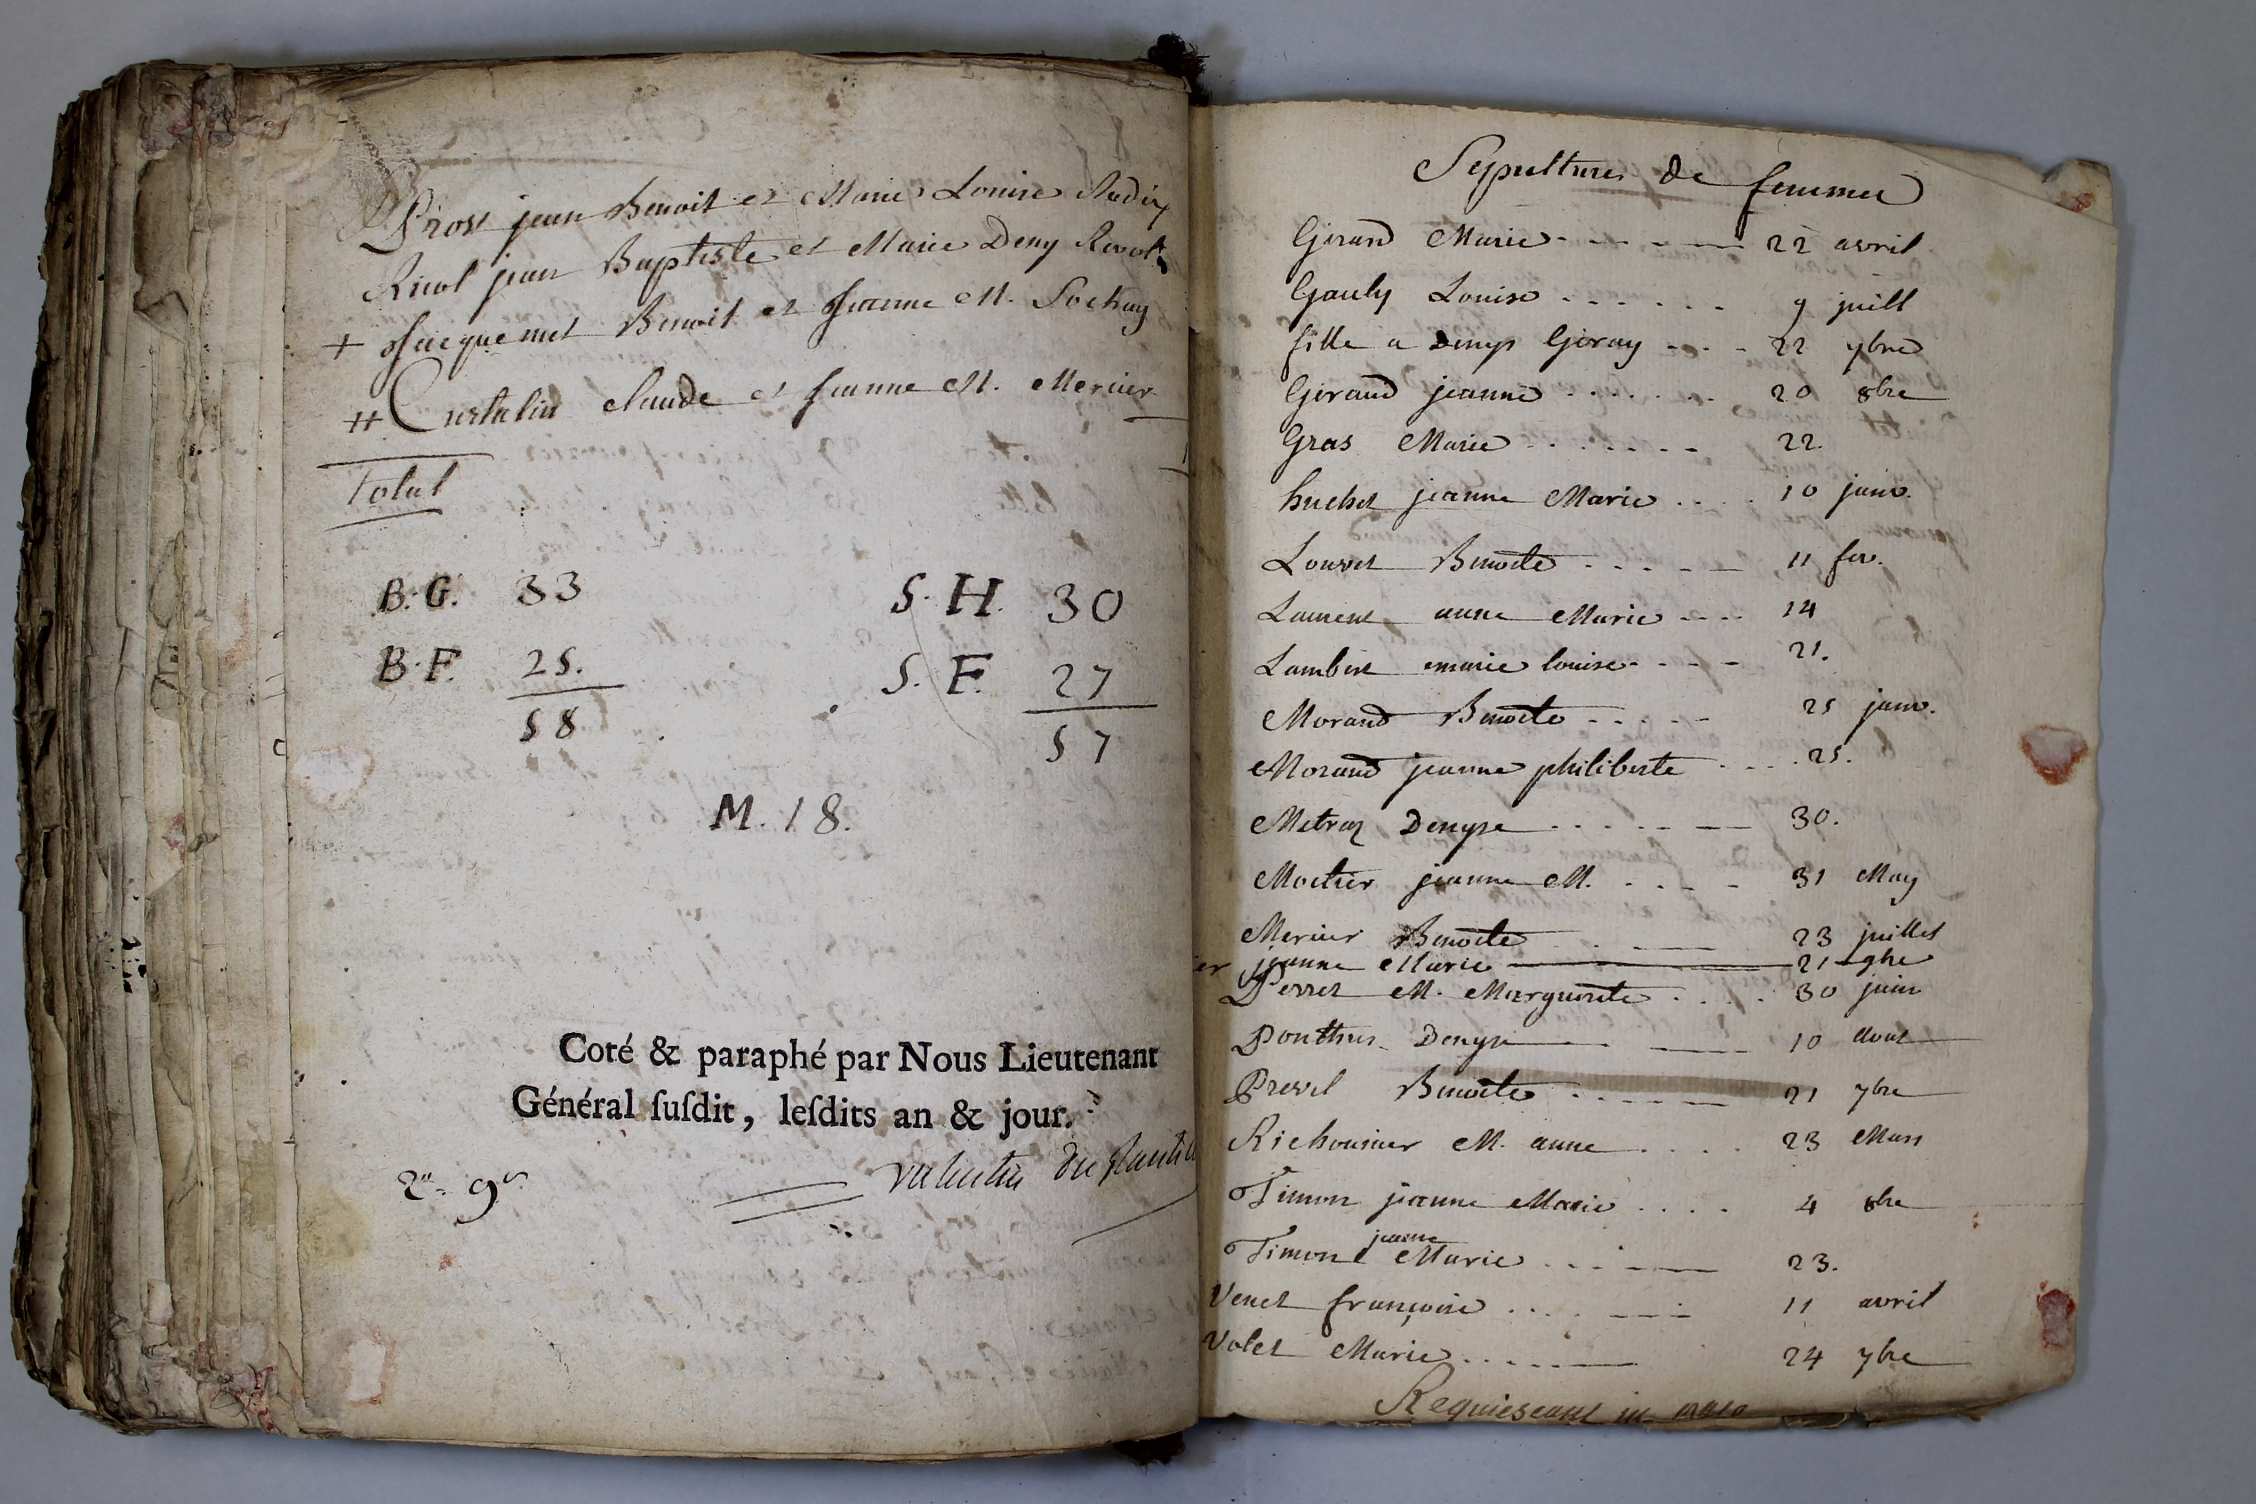 Prost jean Benoit et Marie Louise
Ricol jean Baptiste et Marie Deny
+ Jacquemet Benoit et Jeanne M. Sochay
++ claude et Jeanne M. Mercier
Total
B. G. 33 S. H. 30
B. F. 25. S. F. 27
58 57
M. 18.
Coté & paraphé par Nous Lieutenant
Général ſuſdit, leſdits an & jour.
Sepultures de femmes
Girand Marie 22 avril
Gauly Louise 9 juill
fille a Denys Geray 22 7bre
Giraud jeanne 20 8bre
Gras Marie 22.
huchet jeanne Marie 10 janv.
Louvet Benoite 11 fev.
Laurent anne Marie 14
Lambert marie louise 21.
Morand Benoite 25 janv.
Morand jeanne philiberte 25.
Metraz Denyse 30.
Moctier jeanne M. 31 May
Mercier Benoite 23 juillet
er jeanne Marie 21 9bre
Perret M. Marguerite 30 juin
Ponthus Denyse 10 Aout
Prevel Benoite 21 7bre
Richonnier M. anne 23 Mars
Timon jeanne Marie 4 8bre
Timon jeanne Marie 23.
Venet françoise 11 avril
Volet Marie 24 7bre
Requiescant in pace